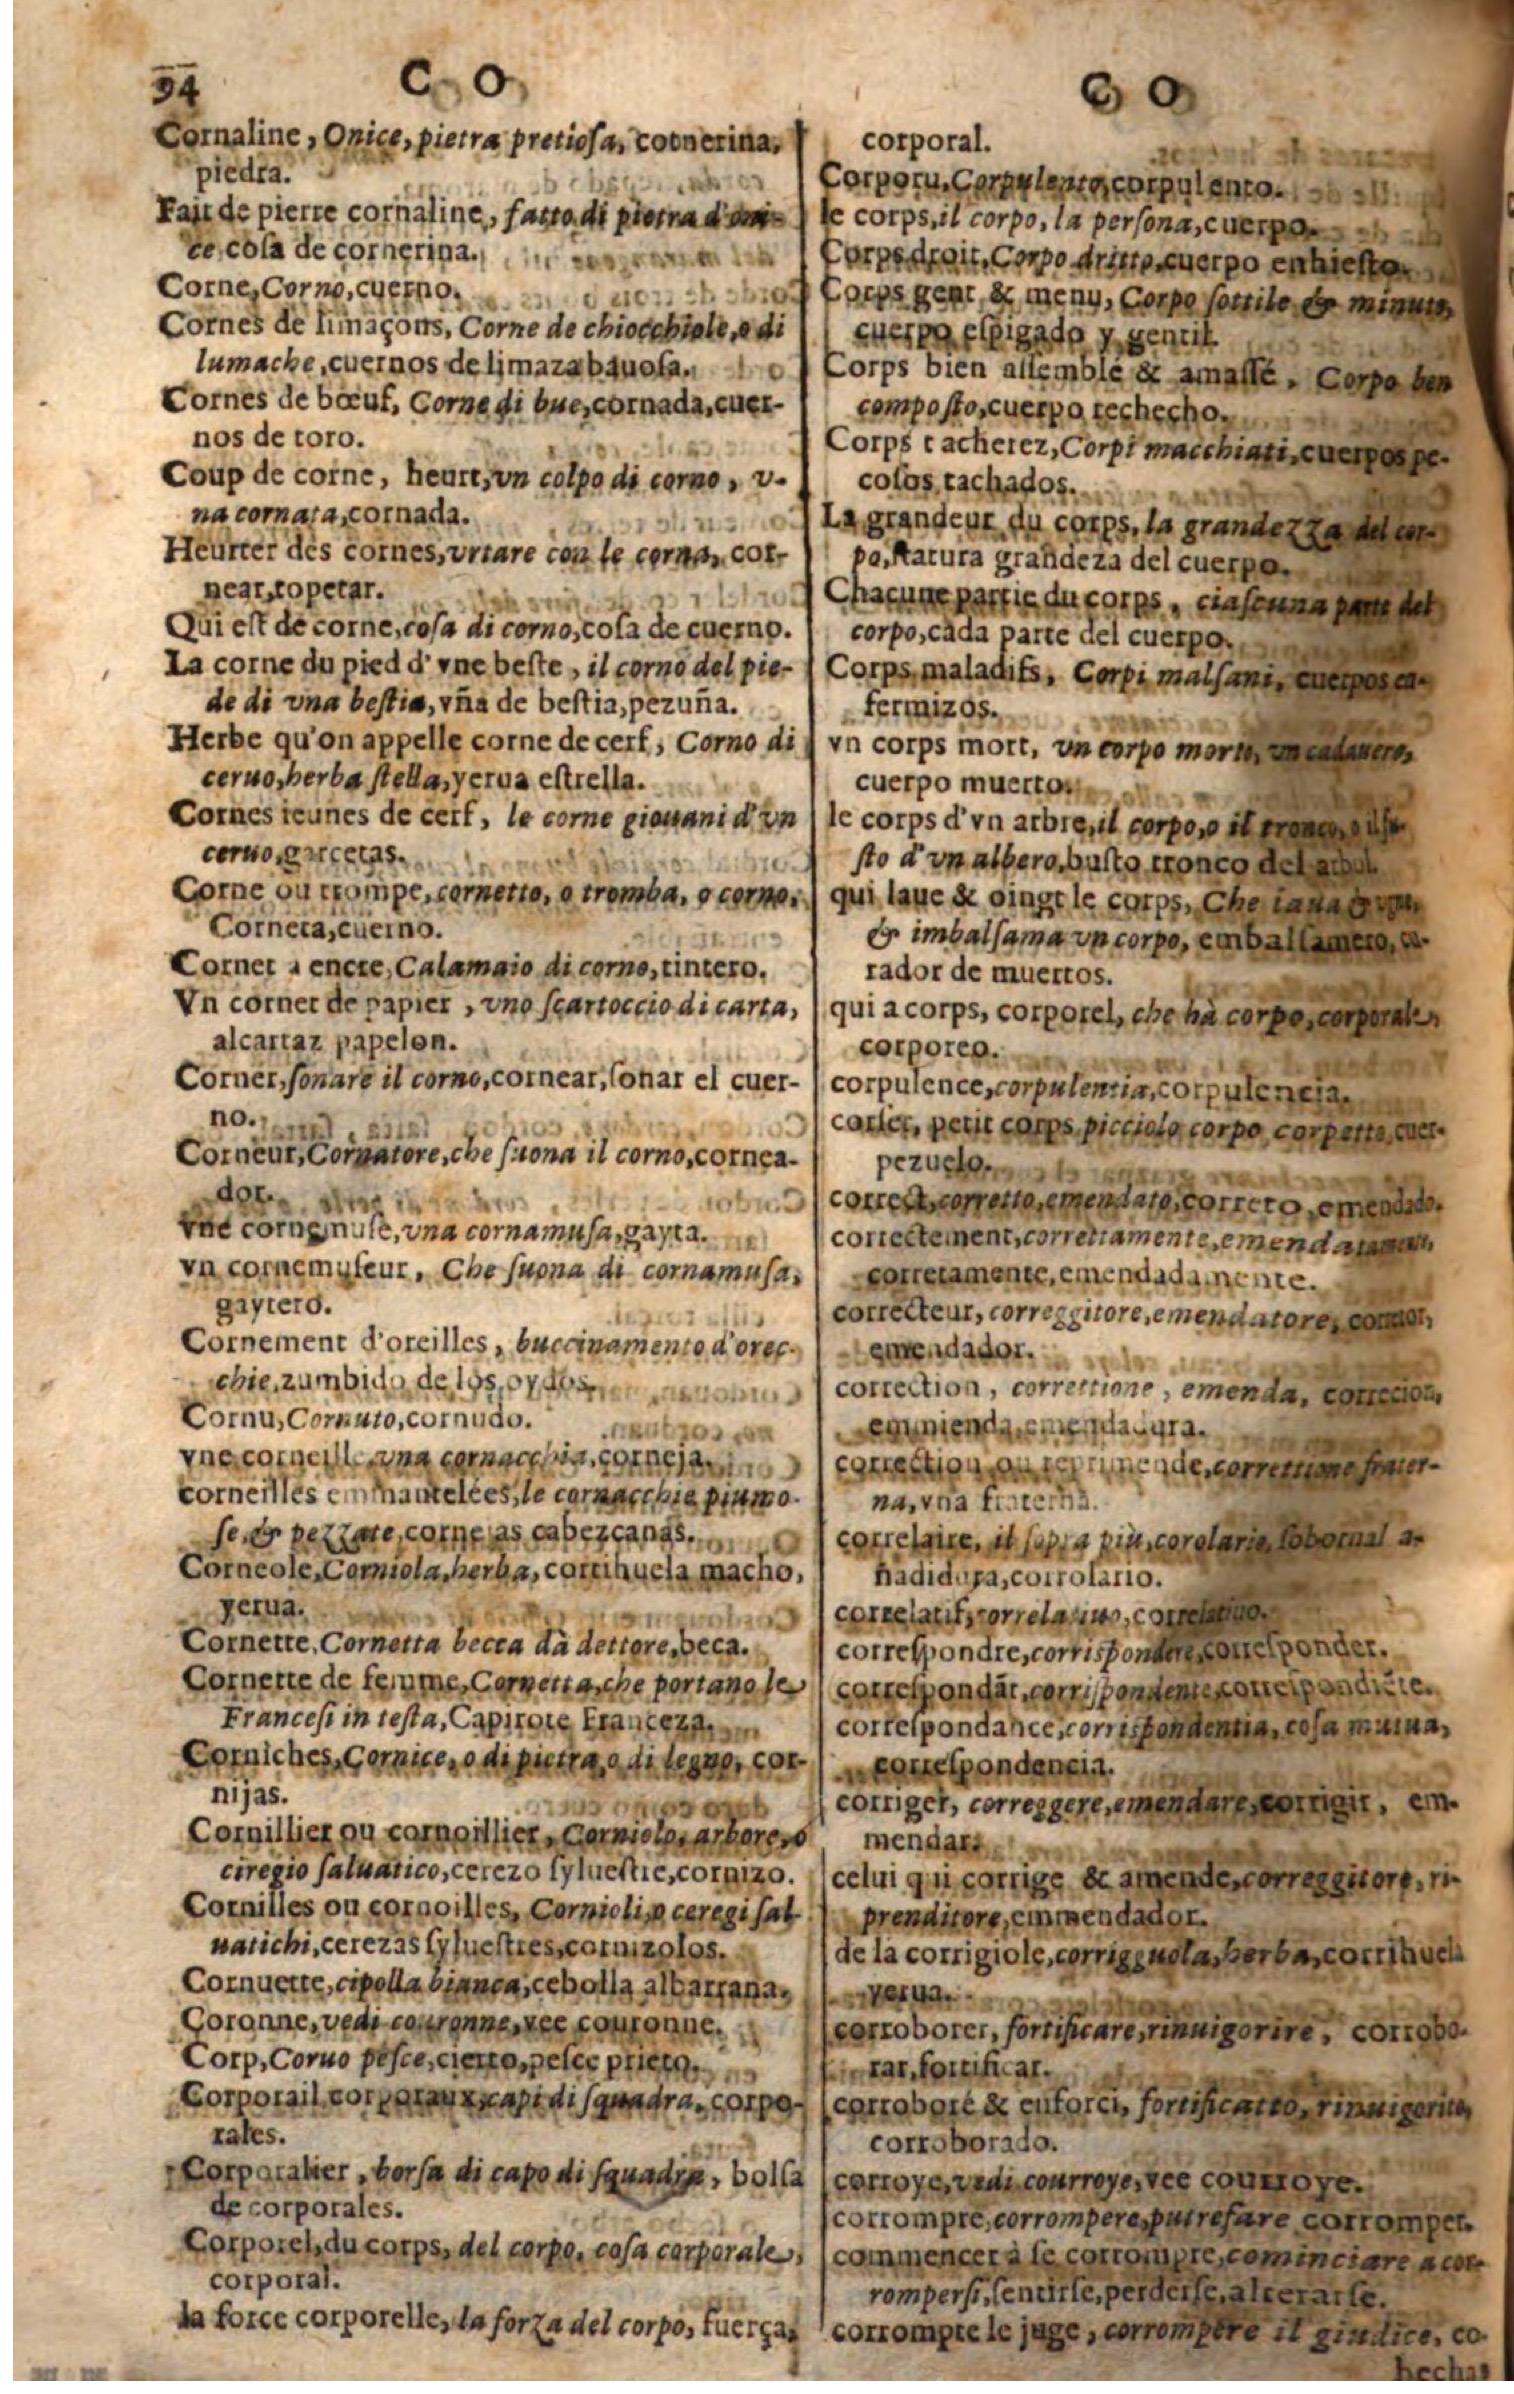 94
C O
Cornaline, Onice, pietra pretiosa, cornerina,
piedra.
Fait de pierre cornaline, fatto di pietra d'oni-
ce, cosa de cornerina.
Corne, Corno, cuerno.
Cornes de limaçons, Corne de chiocchiole, o di
lumache, cuernos de limaza bauosa.
Cornes de bœuf, Corne di bue, cornada, cuer-
nos de toro.
Coup de corne, heurt, vn colpo di corno, v-
na cornata, cornada.
Heurter des cornes, vrtare con le corna, cor-
near, topetar.
Qui est de corne, cosa di corno, cosa de cuerno.
La corne du pied d'vne beste, il corno del pie-
de di vna bestia, vña de bestia, pezuña.
Herbe qu'on appelle corne de cerf, Corno di
ceruo, herba stella, yerua estrella.
Cornes ieunes de cerf, le corne giouani d'vn
ceruo, garcetas.
Corne ou trompe, cornetto, o tromba, o corno,
Corneta, cuerno.
Cornet a encre, Calamaio di corno, tintero.
Vn cornet de papier, vno scartoccio di carta,
alcartaz papelon.
Corner, sonare il corno, cornear, sonar el cuer-
no.
Corneur, Cornatore, che suona il corno, cornea-
dor.
vne cornemuse, vna cornamusa, gayta.
vn cornemuseur, Che suona di cornamusa,
gaytero.
Cornement d'oreilles, buccinamento d'orec-
chie, zumbido de los oydos.
Cornu, Cornuto, cornudo.
vne corneille, vna cornacchia, corneja.
corneilles emmantelées, le cornacchie piumo-
se, & pezzate, cornejas cabezcanas.
Corneole, Corniola, herba, corrihuela macho,
yerua.
Cornette, Cornetta becca dà dottore, beca.
Cornette de femme, Cornetta, che portano le
Francesi in testa, Capirote Franceza.
Corniches, Cornice, o di pietra, o di legno, cor-
nijas.
Cornillier ou cornoillier, Corniolo, arbore, ó
ciregio saluatico, cerezo syluestre, cornizo.
Cornilles ou cornoilles, Cornioli, o ceregi sal-
uatichi, cerezas syluestres, cornizolos.
Cornuette, cipolla bianca, cebolla albarrana.
Coronne, vedi couronne, vee couronne.
Corp, Coruo pesce, cierto, pesce prieto.
Corporail corporaux, capi di squadra, corpo-
rales.
Corporalier, borsa di capo di squadra, bolsa
de corporales.
Corporel, du corps, del corpo, cosa corporale,
corporal.
la force corporelle, la forza del corpo, fuerça,
C O
corporal.
Corporu, Corpulento, corpulento.
le corps, il corpo, la persona, cuerpo.
Corps droit, Corpo dritto, cuerpo enhiesto.
Corps gent & menu, Corpo sottile & minuto,
cuerpo espigado y gentil.
Corps bien assemblé & amassé, Corpo ben
composto, cuerpo rechecho.
Corps tacherez, Corpi macchiati, cuerpos pe-
cosos tachados.
La grandeur du corps, la grandezza del cor-
po, statura grandeza del cuerpo.
Chacune partie du corps, ciascuna parte del
corpo, cada parte del cuerpo.
Corps maladifs, Corpi malsani, cuerpos en-
fermizos.
vn corps mort, vn corpo morto, vn cadauero,
cuerpo muerto.
le corps d'vn arbre, il corpo, o il tronco, o il fu-
sto d'vn albero, busto tronco del arbol.
qui laue & oingt le corps, Che laua & vgne,
& imbalsama vn corpo, embalsamero, cu-
rador de muertos.
qui a corps, corporel, che hà corpo, corporale,
corporeo.
corpulence, corpulentia, corpulencia.
corset, petit corps picciolo corpo corpetto, cuer-
pezuelo.
correct, corretto, emendato, correto, emendado.
correctement, correttamente, emendatamente,
corretamente, emendadamente.
correcteur, correggitore, emendatore, corretor,
emendador.
correction, correttione, emenda, correcion,
emmienda, emendadura.
correction ou reprimende, correttione frater-
na, vna fraterna.
correlaire, il sopra più, corolario, sobornal a-
ñadidura, corrolario.
correlatif, correlatiuo, correlatiuo.
correspondre, corrispondere, corresponder.
correspondãt, corrispondente, correspondiẽte.
correspondance, corrispondentia, cosa mutua,
correspondencia.
corriger, correggere, emendare, corrigir, em-
mendar.
celui qui corrige & amende, correggitore, ri-
prenditore, emmendador.
de la corrigiole, corrigguola, herba, corrihuela
yerua.
corroborer, fortificare, rinuigorire, corrobo-
rar, fortificar.
corroboré & enforci, fortificatto, rinuigorito,
corroborado.
corroye, vedi courroye, vee courroye.
corrompre, corrompere, putrefare corromper.
commencer à se corrompre, cominciare a cor-
rompersi, sentirse, perderse, alterarse.
corrompre le juge, corrompere il giudice, co-
hechar